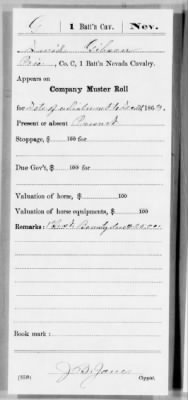 G | 1 Batt's Cav. | Nev.
Gibson
Priv., Co. C, 1 Batt's Nevada Cavalry.
Appears on
Company Muster Roll
for Date of enlistment to Dec 31, 1863.
Present or absent Present
Stoppage, $ 100 for
Due Gov't, $ 100 for
Valuation of horse, $ 100
Valuation of horse equipments, $ 100
Remarks: Bounty due
Book mark:
(358)
Copyist.